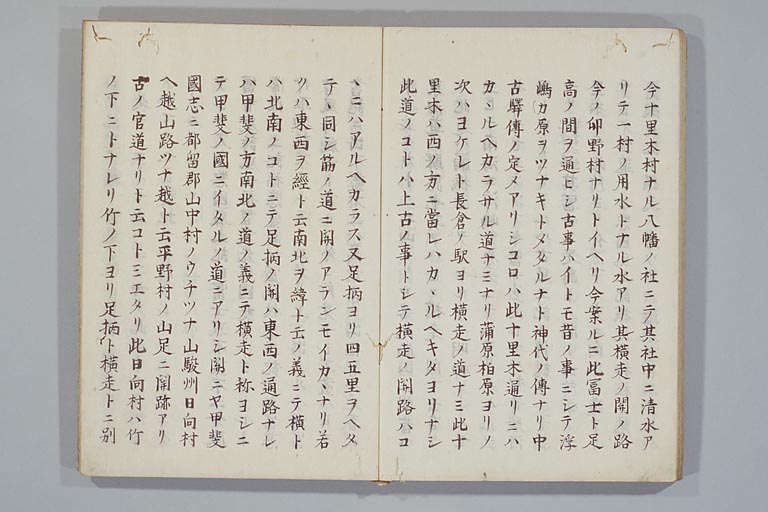 今十里木村ナル八幡ノ社ニテ其社中ニ清水ア
リテ一村ノ用水トナル水アリ其横走ノ関ノ路
今ノ卯野村ナリトイヘリ今案ルニ此冨士ト足
高ノ間ヲ通ヒシ古事ハイトモ昔ノ事ニシテ浮
嶋カ原ヲツナキトメタルナト神代ノ傳ナリ中
古驛傳ノ定メアリシコロハ此十里木通リニハ
カヽルヘカラサル道ナミナリ蒲原柏原ヨリノ
次ハヨケレト長倉ノ駅ヨリ横走ノ道ナミ此十
里木ハ西ノ方ニ當レハカヽルヘキタヨリナシ
此道ノコトハ上古ノ事トシテ横走ノ関路ハコ
ヽニハアルヘカラス又足柄ヨリ四五里ヲヘタ
テヽ同シ筋ノ道ニ関ノアランモイカヽナリ若
クハ東西ヲ經ト云南北ヲ緯ト云ノ義ニテ横ト
ハ北南ノコトニテ足柄ノ関ハ東西ノ通路ナレ
ハ甲斐ノ方南北ノ道ノ義ニテ横走ト称ヨシニ
テ甲斐ノ國ニイタルノ道ニアリシ関ニヤ甲斐
國志ニ都留郡山中村ノウチツナ山駿州日向村
ヘ越山路ツナ越ト云平野村ノ山足ニ関跡アリ
古ノ官道ナリト云コトミエタリ此日向村ハ竹
ノ下ニトナレリ竹ノ下ヨリ足柄ト横走トニ別